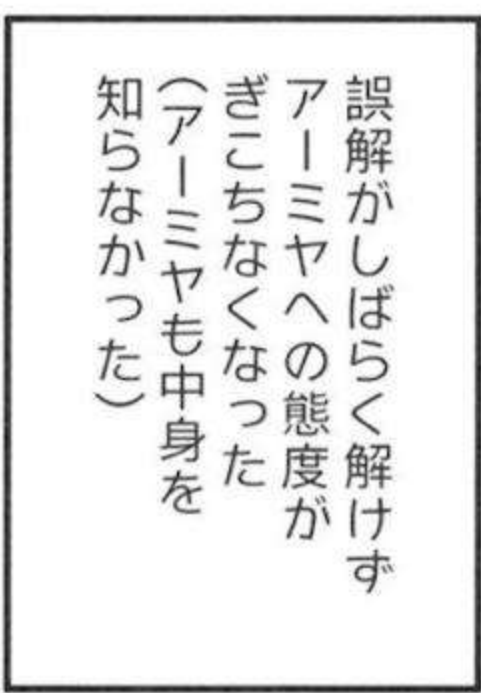 誤解がしばらく解けず
アーミヤへの態度が
ぎこちなくなった
（アーミヤも中身を
知らなかった）